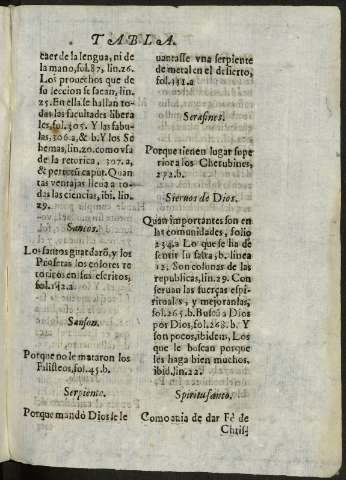 TABLA.
caer de la lengua, ni de
la mano, fol. 87, lin. 26.
Los prouechos que de
su leccion se sacan, lin.
25. En ella se hallan to-
das las facultades libera
les, fol. 305. Y las fabu-
las, 306. a, & b. Y los Sc
hemas, lin. 20. como vsa
de la retorica, 307. a,
& per totũ caput. Quan
tas ventajas lleua a to-
das las ciencias, ibi. lin.
29.
Santos.
Los santos guardarõ, y los
Profetas los colores re
toricos en sus escritos,
fol. 142. a.
Sanson.
Porque no le mataron los
Falisteos, fol. 45. b.
Serpiente.
Porque mandò Dios se le
uantasse vna serpiente
de metal en el desierto,
fol. 132. a
Serafines.
Porque tienen lugar supe
rior a los Cherubines,
272. b.
Sieruos de Dios.
Quan importantes son en
las comunidades, folio
234. a Lo que se ha de
sentir su falta, b. linea
12. Son colunas de las
republicas, lin. 29. Con
seruan las fuerças espi-
rituales, y mejoranlas,
fol. 265. b. Buscã a Dios
por Dios, fol. 268. b. Y
son pocos, ibidem, Los
que le buscan porque
les haga bien muchos,
ibid, lin. 22.
Spiritusanto.
Como auia de dar Fè de
Chris-